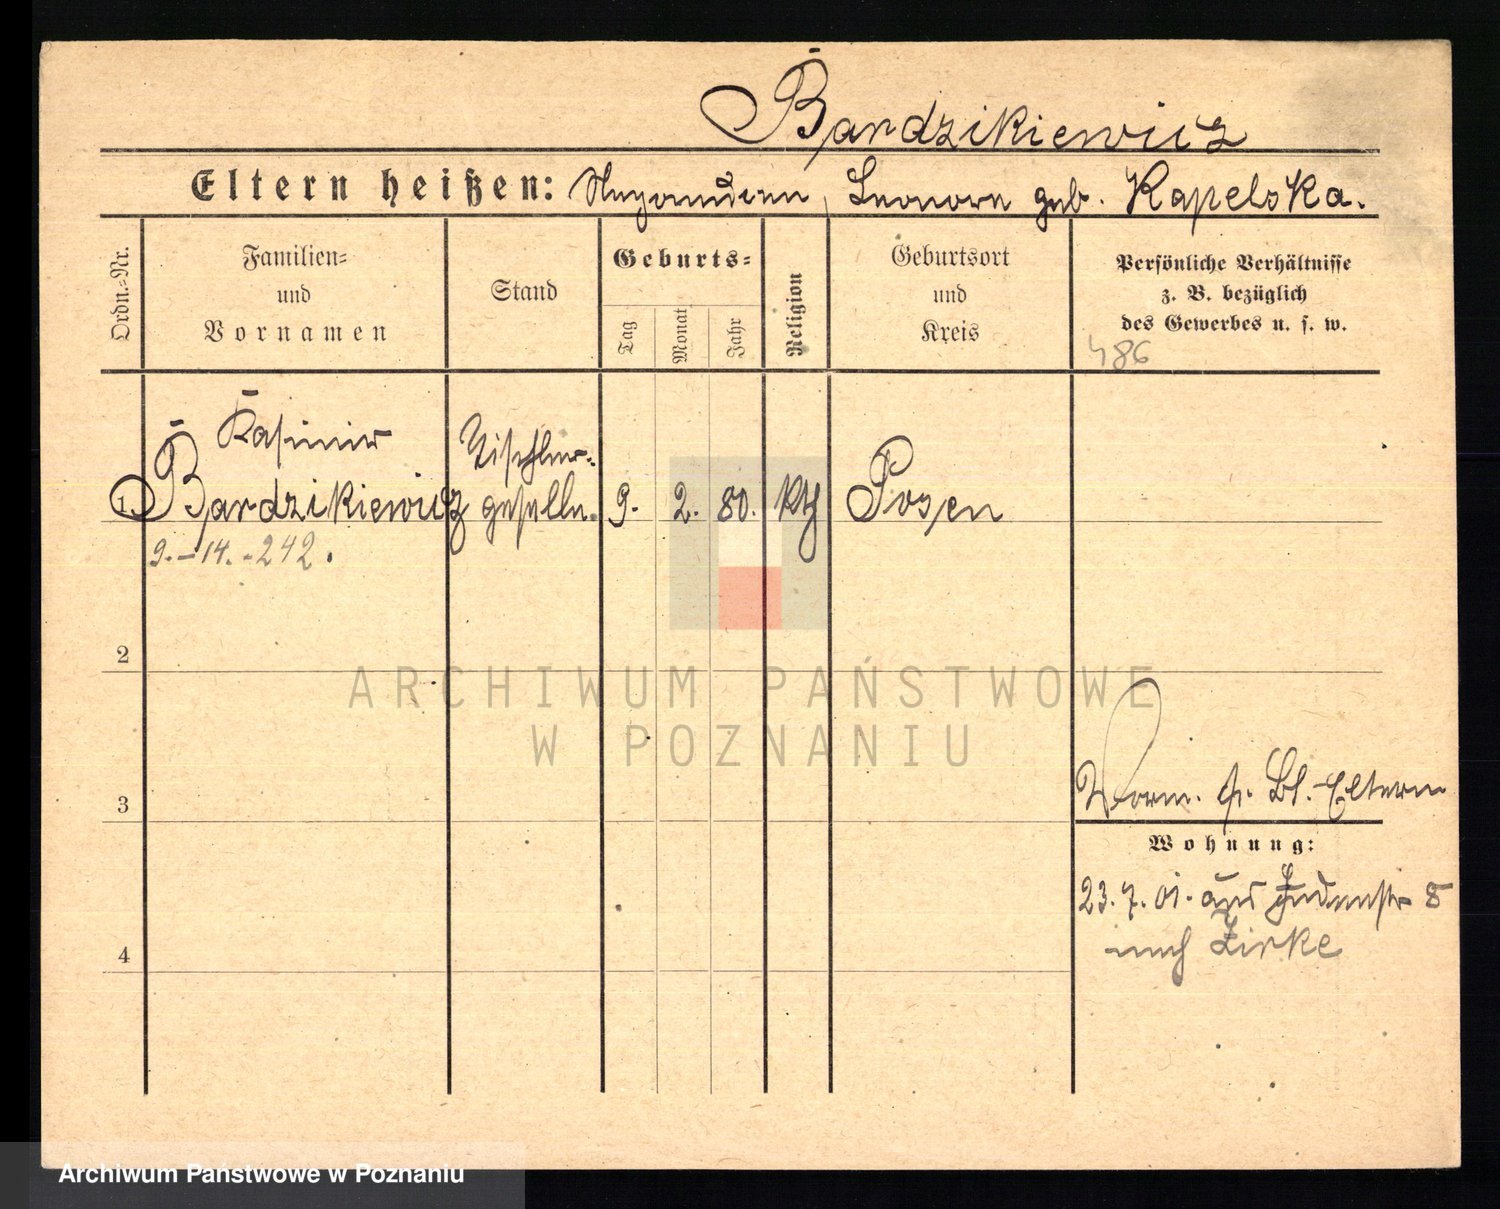 Bardzikiewicz
Eltern heißen: Leonore geb. Kapelska.
Ordn.-Nr.
Familien-
und
Vornamen
Stand
Geburts-
Tag
Monat
Jahr
Religion
Geburtsort
und
Kreis
Persönliche Verhältnisse
z. B. bezüglich
des Gewerbes u. s. w.
486
Kasimir
Tischler-
1. Bardzikiewicz geselle. 9. 2. 80. kth Posen
9.-14.-242.
2
ARCHIWUM PAŃSTWOWE
W POZNANIU
3
Vorm. f. Bl. Eltern
Wohnung:
23.7.01. aus Judenstr 8
nach Zirke
4
Archiwum Państwowe w Poznaniu